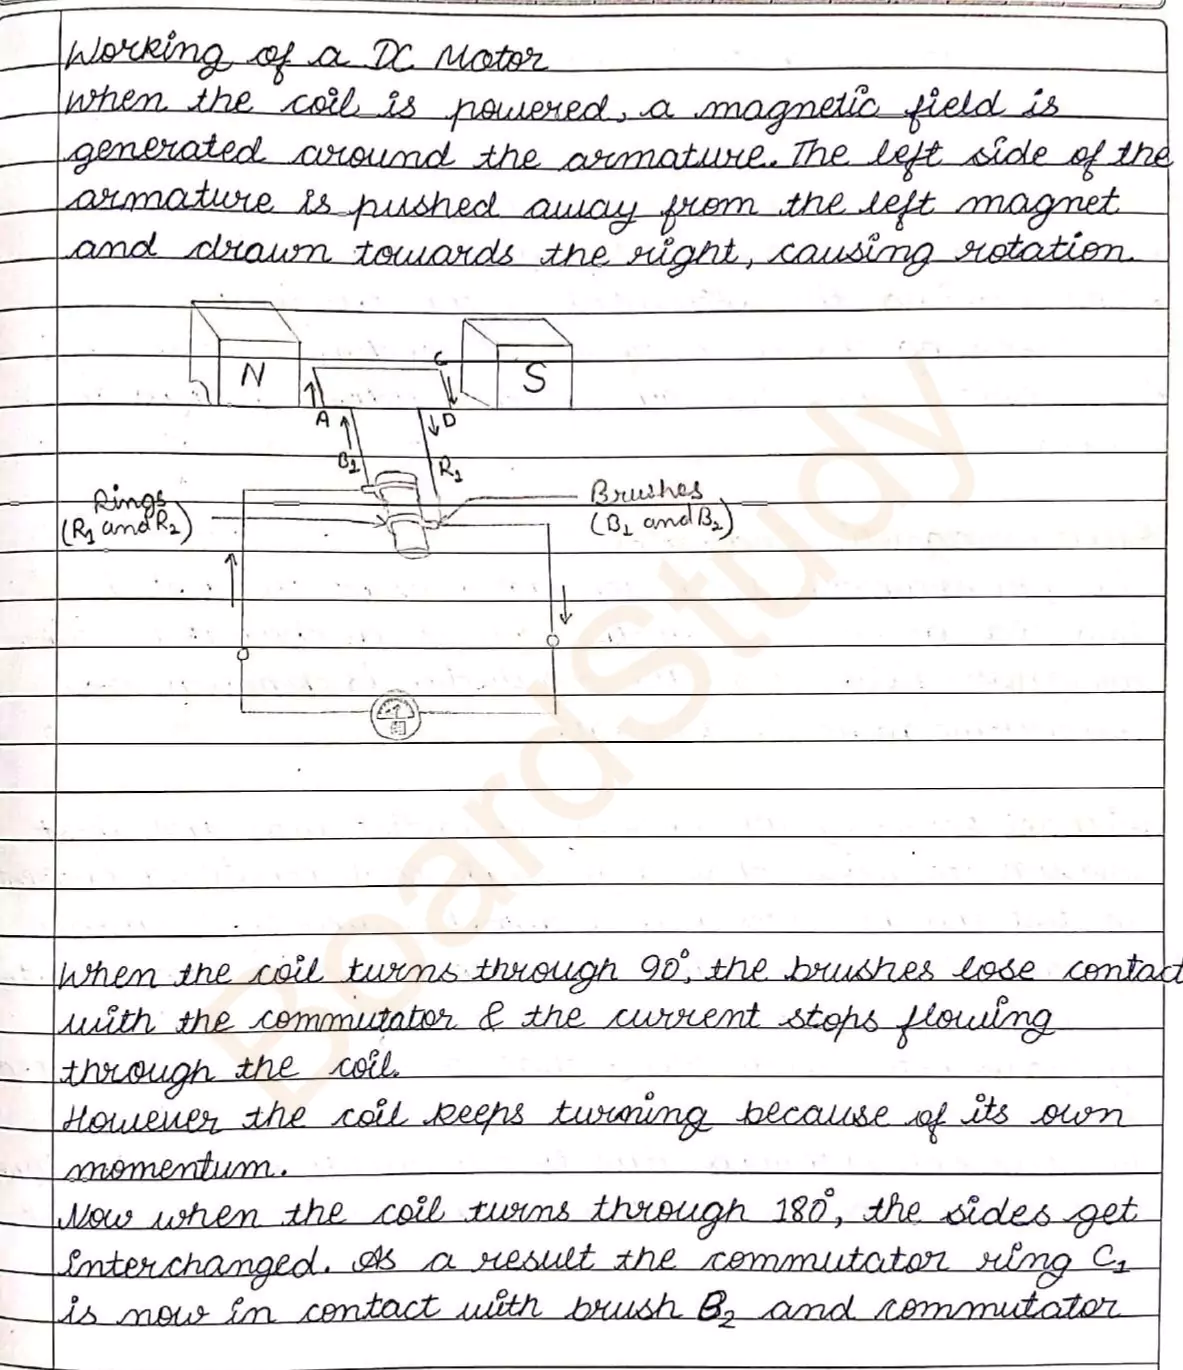 Working of a DC Motor
When the coil is powered, a magnetic field is
generated around the armature. The left side of the
armature is pushed away from the left magnet
and drawn towards the right, causing rotation.
N
S
C
A
D
B2
R1
Rings
(R1 and R2)
Brushes
(B1 and B2)
When the coil turns through 90°, the brushes lose contact
with the commutator & the current stops flowing
through the coil.
However the coil keeps turning because of its own
momentum.
Now when the coil turns through 180°, the sides get
interchanged. As a result the commutator ring C1
is now in contact with brush B2 and commutator
BoardStudy